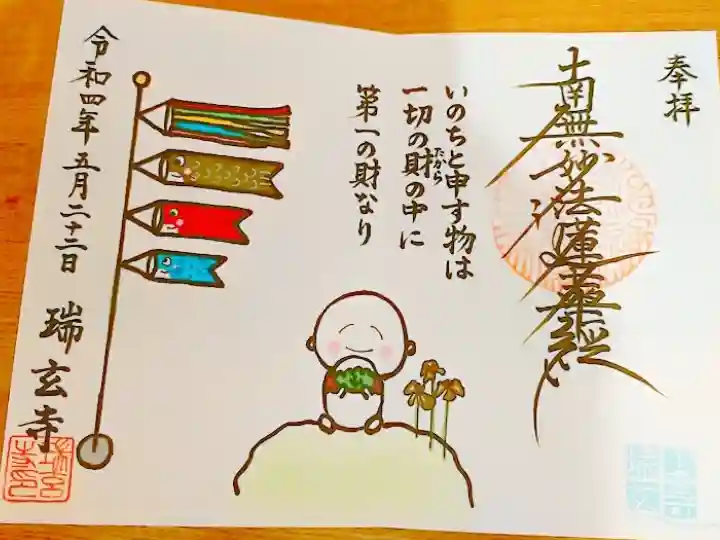 奉拝
南無妙法蓮華経
いのちと申す物は
一切の財の中に
たから
第一の財なり
令和四年五月二十二日
瑞玄寺